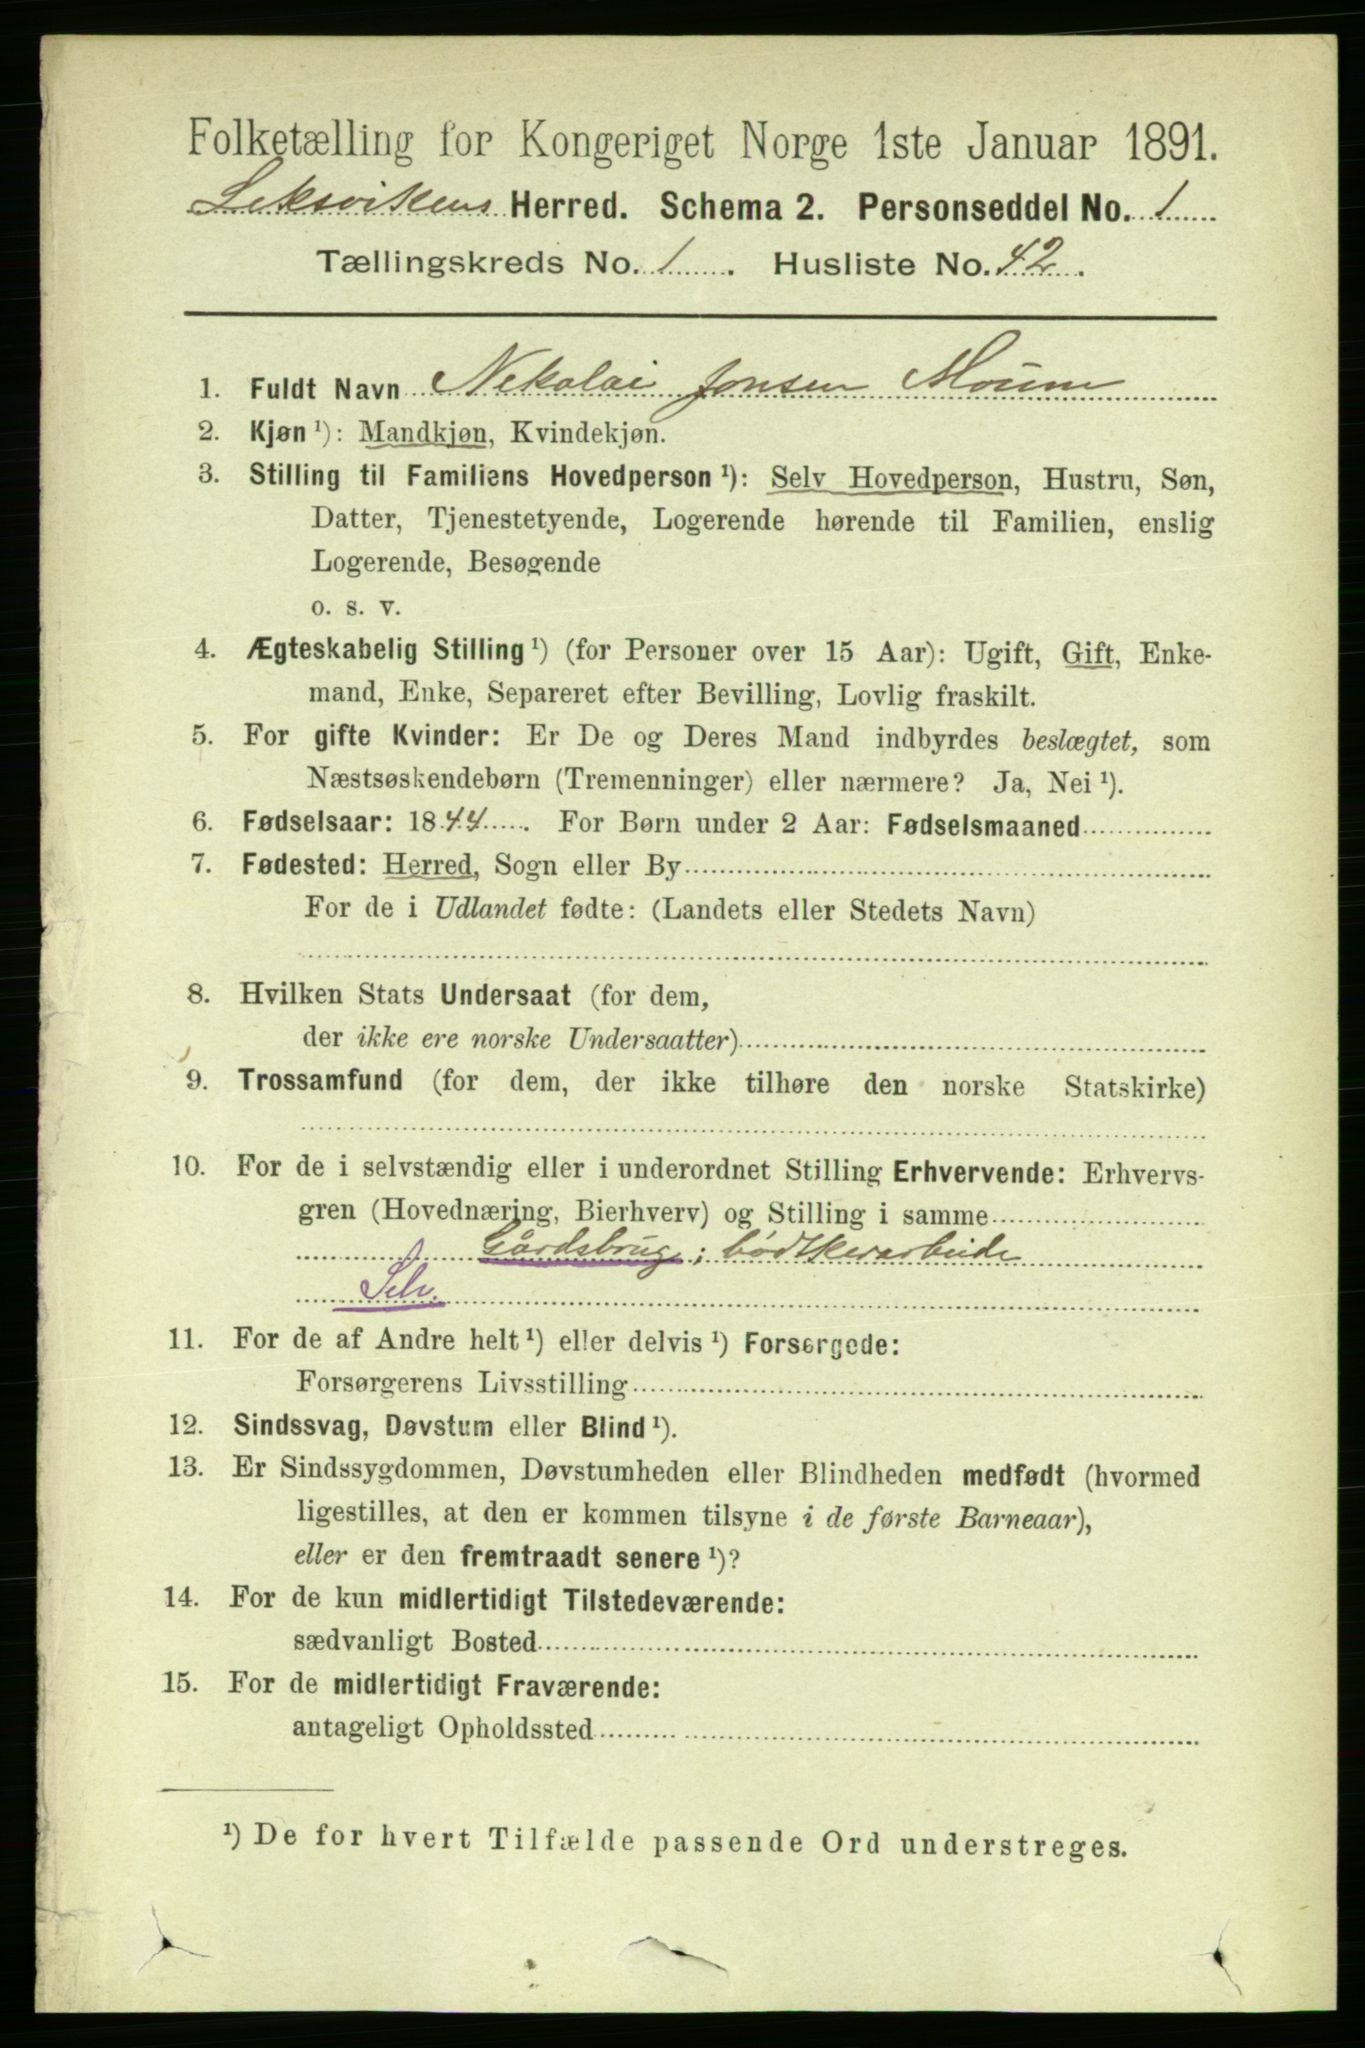 Folketælling for Kongeriget Norge 1ste Januar 1891.
Leksvikens Herred. Schema 2. Personseddel No. 1
Tællingskreds No. 1. Husliste No. 42.
1. Fuldt Navn Nekolai Jonsen Moum
2. Kjøn ¹): Mandkjøn, Kvindekjøn.
3. Stilling til Familiens Hovedperson ¹): Selv Hovedperson, Hustru, Søn,
Datter, Tjenestetyende, Logerende hørende til Familien, enslig
Logerende, Besøgende
o. s. v.
4. Ægteskabelig Stilling ¹) (for Personer over 15 Aar): Ugift, Gift, Enke-
mand, Enke, Separeret efter Bevilling, Lovlig fraskilt.
5. For gifte Kvinder: Er De og Deres Mand indbyrdes beslægtet, som
Næstsøskendebørn (Tremenninger) eller nærmere? Ja, Nei ¹).
6. Fødselsaar: 1844. For Børn under 2 Aar: Fødselsmaaned
7. Fødested: Herred, Sogn eller By
For de i Udlandet fødte: (Landets eller Stedets Navn)
8. Hvilken Stats Undersaat (for dem,
der ikke ere norske Undersaatter)
9. Trossamfund (for dem, der ikke tilhøre den norske Statskirke)
10. For de i selvstændig eller i underordnet Stilling Erhvervende: Erhvervs-
gren (Hovednæring, Bierhverv) og Stilling i samme
Gårdsbrug; bødtkerarbeide
Selv.
11. For de af Andre helt ¹) eller delvis ¹) Forsørgede:
Forsørgerens Livsstilling
12. Sindssvag, Døvstum eller Blind ¹).
13. Er Sindssygdommen, Døvstumheden eller Blindheden medfødt (hvormed
ligestilles, at den er kommen tilsyne i de første Barneaar),
eller er den fremtraadt senere ¹)?
14. For de kun midlertidigt Tilstedeværende:
sædvanligt Bosted
15. For de midlertidigt Fraværende:
antageligt Opholdssted
¹) De for hvert Tilfælde passende Ord understreges.